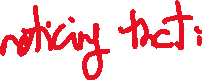 noticing tact: